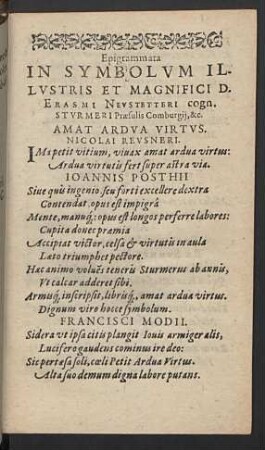 Epigrammata
IN SYMBOLVM IL-
LVSTRIS ET MAGNIFICI D.
ERASMI NEVSTETTERI cogn.
STVRMERI Præsulis Comburgij, &c.
AMAT ARDVA VIRTVS.
NICOLAI REVSNERI.
IMa petit vitium, viuax amat ardua virtus:
Ardua virtutis fert super astra via.
IOANNIS POSTHII
Siue quis ingenio, seu forti excellere dextra
Contendat, opus est impigrâ
Mente, manuq́;: opus est longos perferre labores:
Cupita donec præmia
Accipiat victor, celsa & virtutis in aula
Lato triumphet pectore.
Hac animo voluēs teneris Sturmerus ab annis,
Vt calcar adderet sibi.
Armisq́, inscripsit, librisq́;, amat ardua virtus.
Dignum viro hocce symbolum.
FRANCISCI MODII.
Sidera vt ipsa citis plangit Iouis armiger alis,
Lucifero gaudens cominus ire deo:
Sic pertæsa soli, cœli Petit Ardua Virtus.
Alta suo demum digna labore putans.